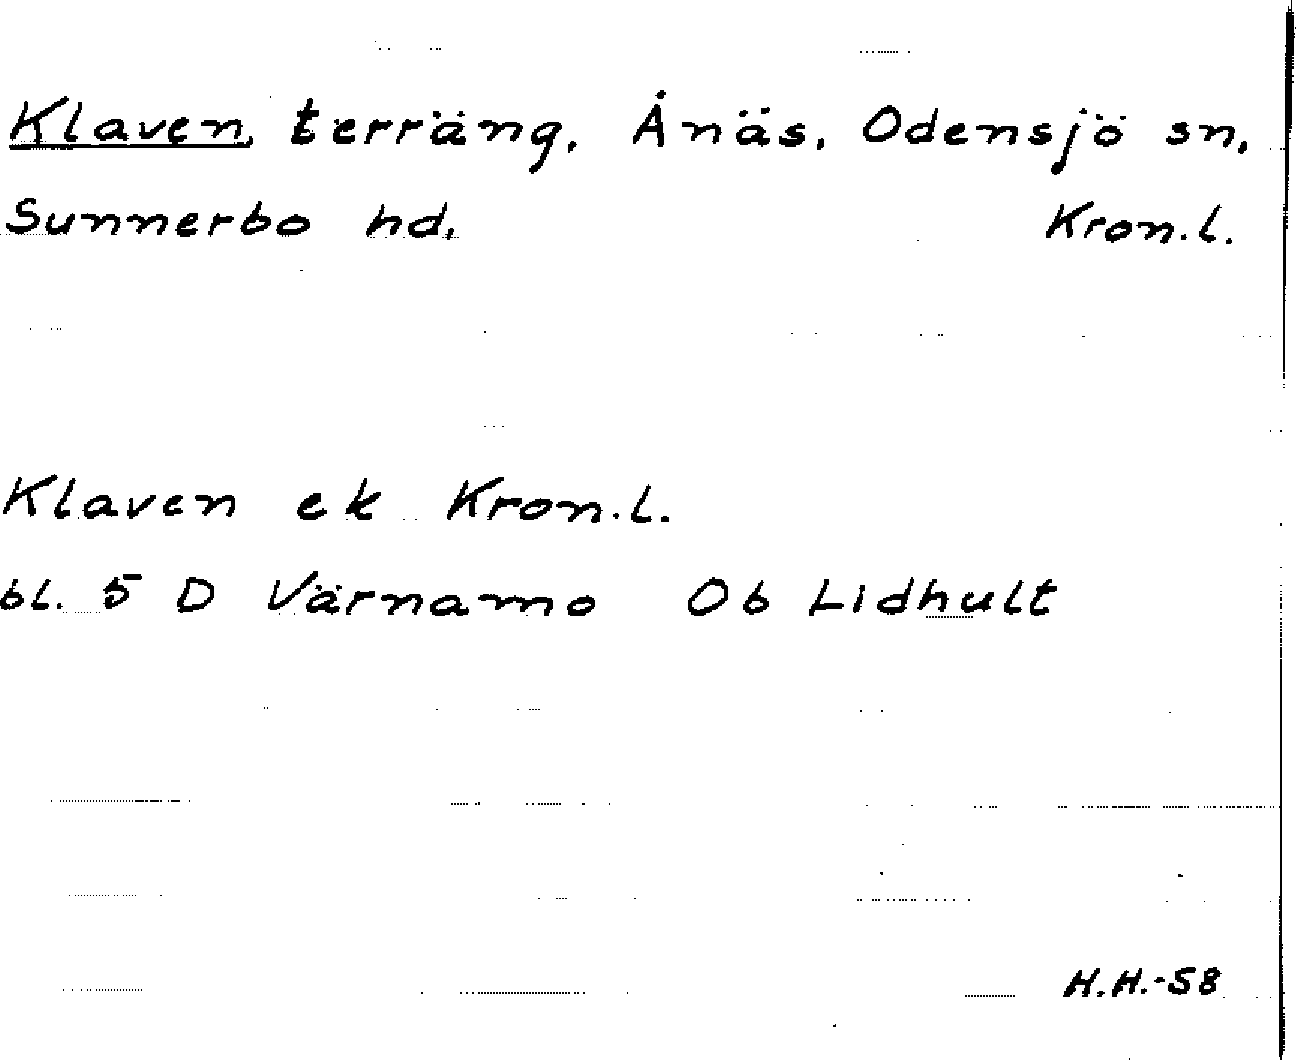 Klaven, terräng, Ånäs, Odensjö sn,
Sunnerbo hd. Kron.l.
Klaven ek Kron.l.
bl. 5 D Värnamo Ob Lidhult
H.H.-58